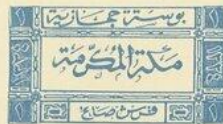 بوستة حجازية
مكة المكرمة
قرش صاغ